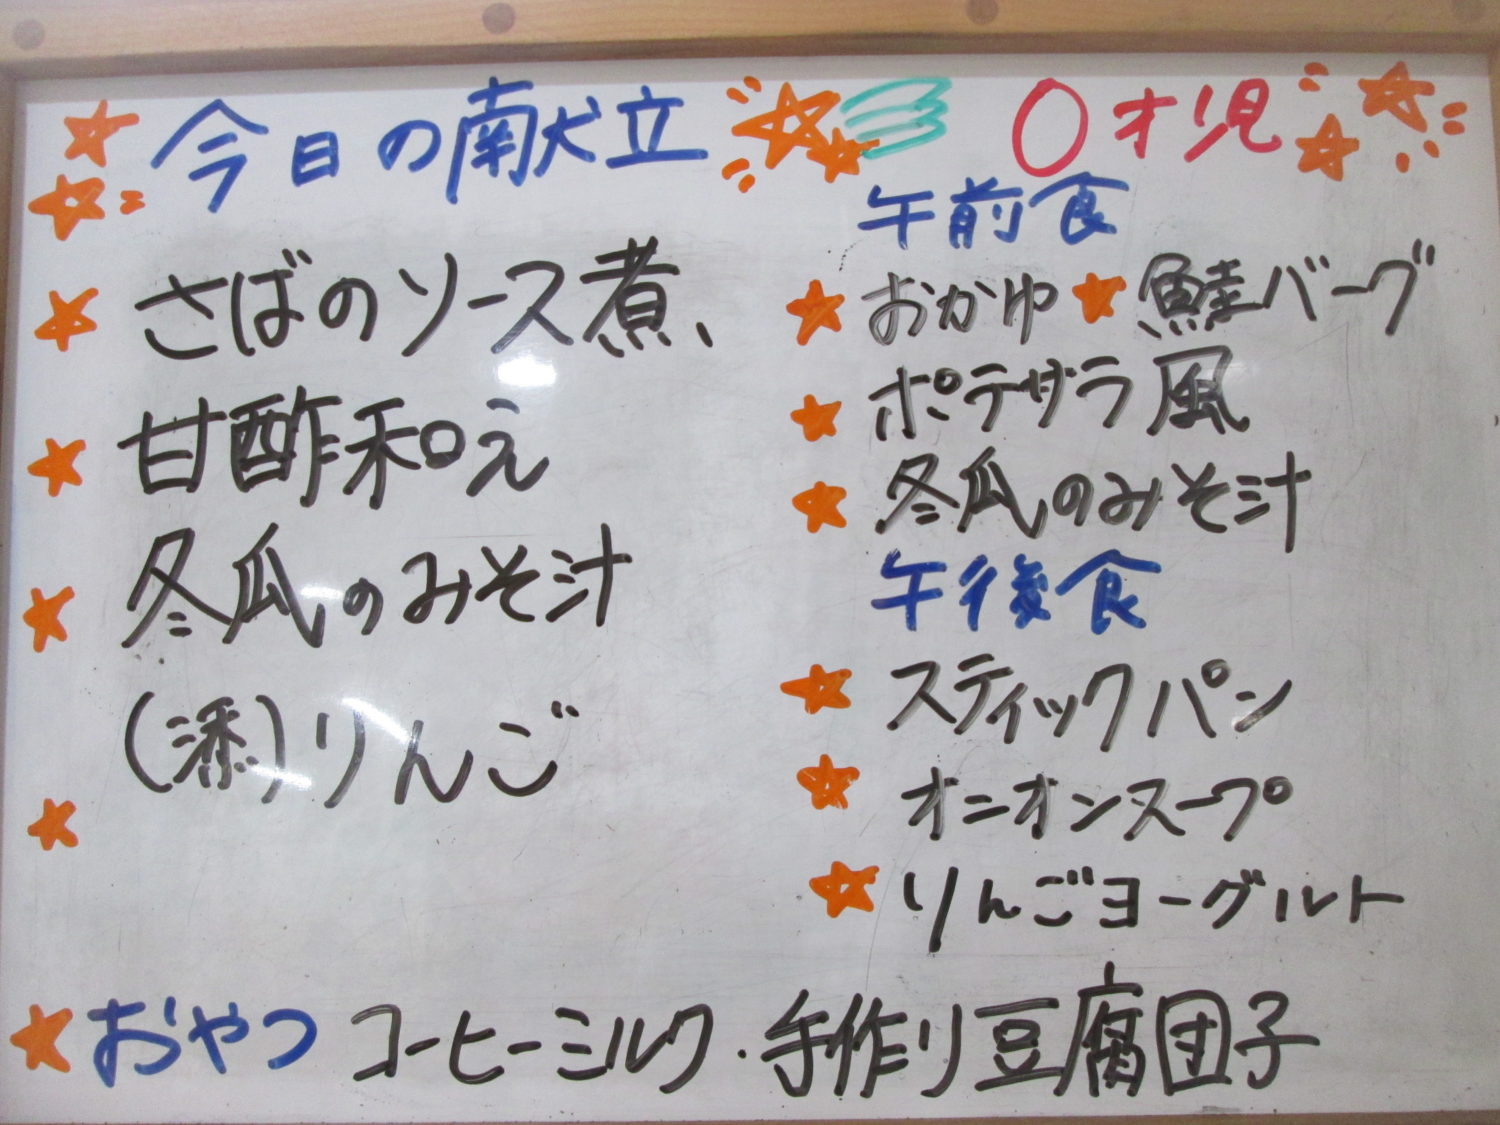 今日の献立
さばのソース煮、
甘酢和え
冬瓜のみそ汁
(添)りんご
0才児
午前食
おかゆ 鮭バーグ
ポテサラ風
冬瓜のみそ汁
午後食
スティックパン
オニオンスープ
りんごヨーグルト
おやつ コーヒーミルク・手作り豆腐団子